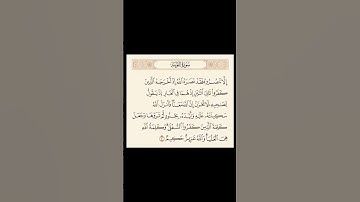 سورة التوبة
إِلَّا تَنصُرُوهُ فَقَدْ نَصَرَهُ اللَّهُ إِذْ أَخْرَجَهُ الَّذِينَ
كَفَرُوا ثَانِيَ اثْنَيْنِ إِذْ هُمَا فِي الْغَارِ إِذْ يَقُولُ
لِصَاحِبِهِ لَا تَحْزَنْ إِنَّ اللَّهَ مَعَنَا فَأَنزَلَ اللَّهُ
سَكِينَتَهُ عَلَيْهِ وَأَيَّدَهُ بِجُنُودٍ لَّمْ تَرَوْهَا وَجَعَلَ
كَلِمَةَ الَّذِينَ كَفَرُوا السُّفْلَىٰ وَكَلِمَةُ اللَّهِ
هِيَ الْعُلْيَا وَاللَّهُ عَزِيزٌ حَكِيمٌ ٤٠